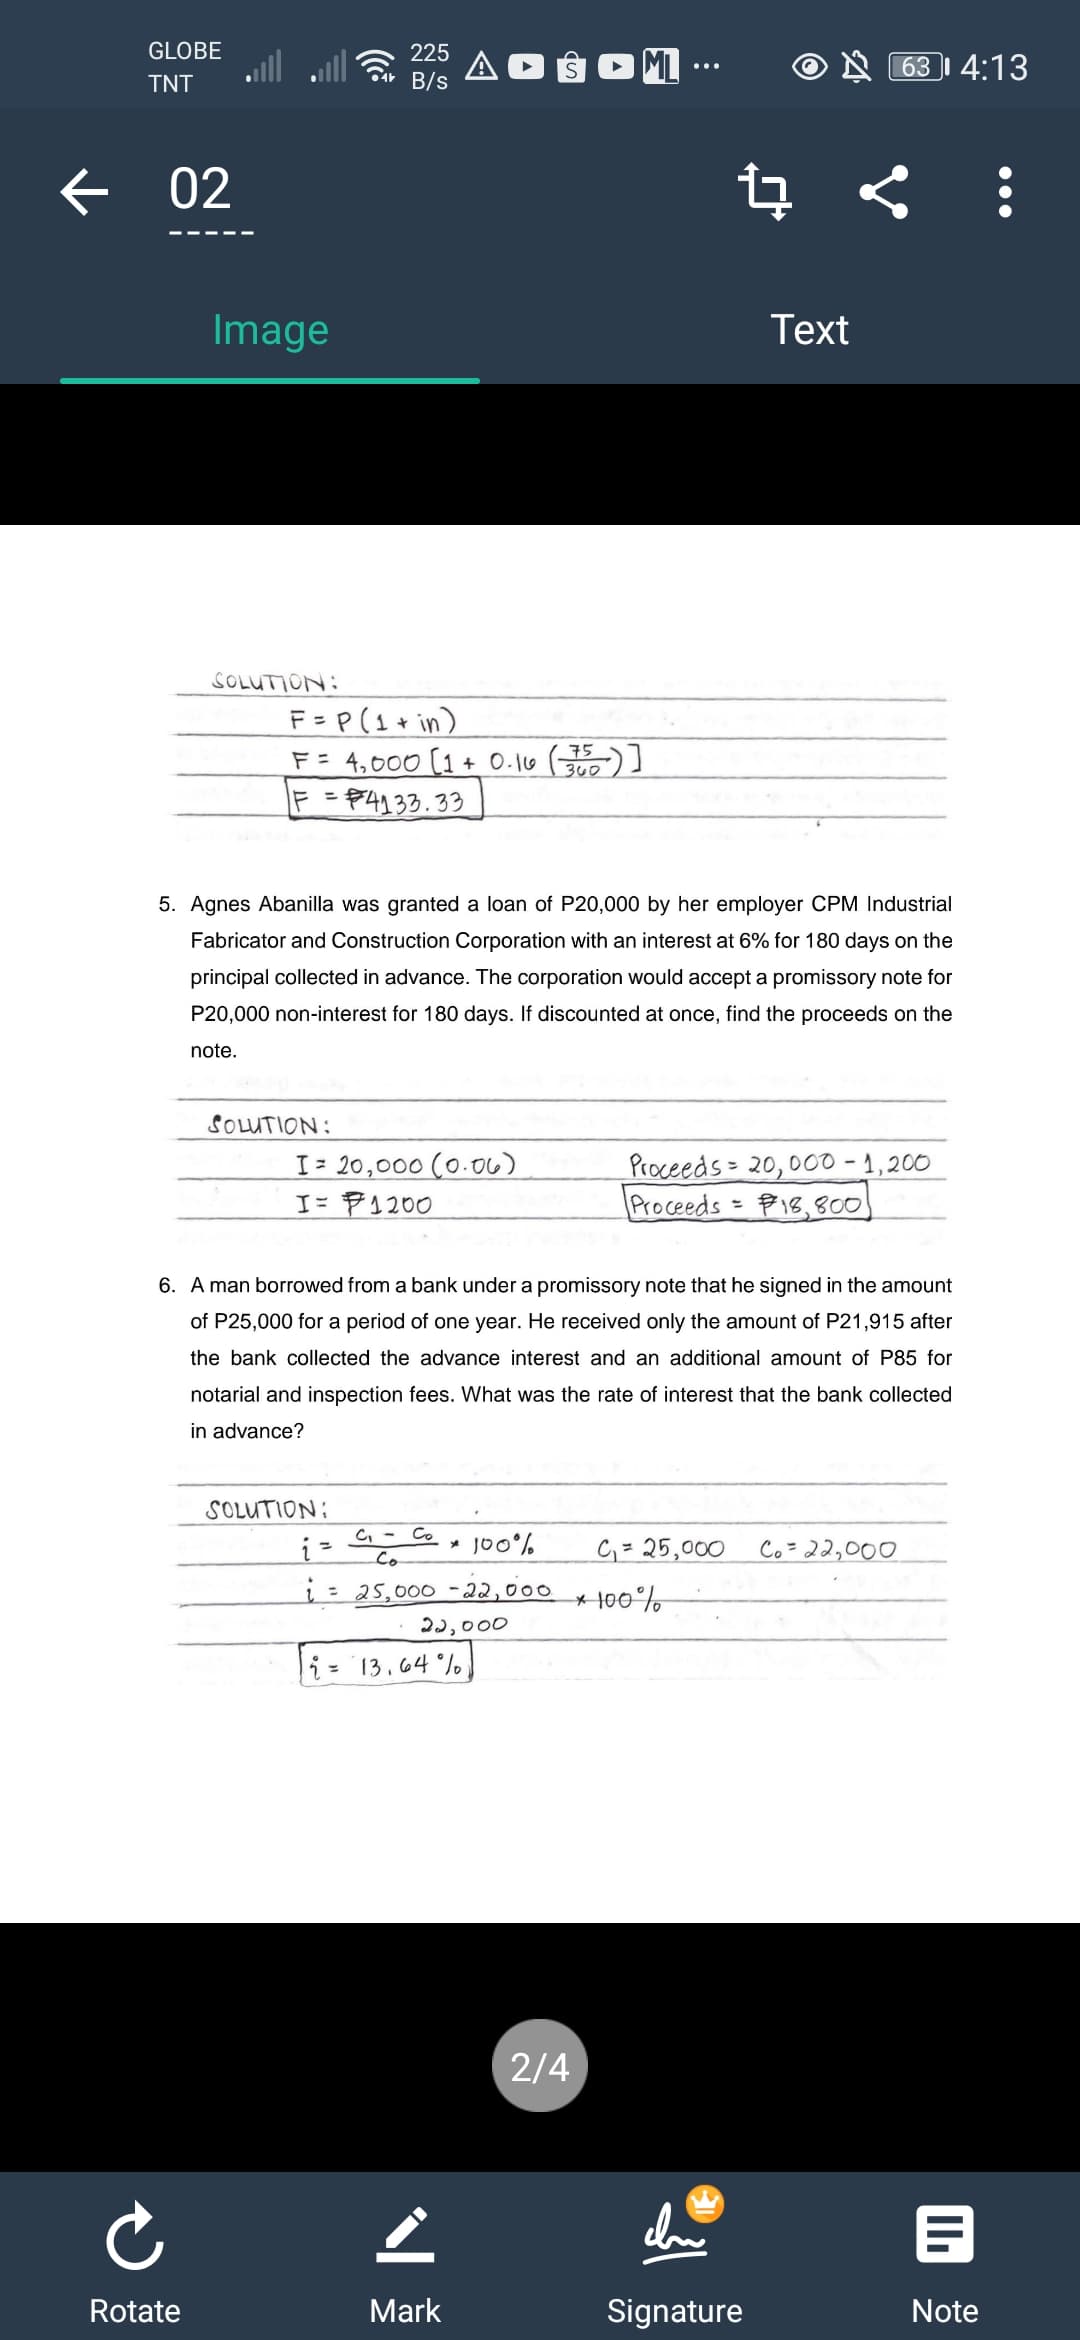 GLOBE
TNT
225
B/s
63
4:13
02
Image
Text
SOLUTION:
F = P(1 + in)
F = 4,000 [1 + 0.16 (75/360)]
F = ₱4133.33
5. Agnes Abanilla was granted a loan of P20,000 by her employer CPM Industrial
Fabricator and Construction Corporation with an interest at 6% for 180 days on the
principal collected in advance. The corporation would accept a promissory note for
P20,000 non-interest for 180 days. If discounted at once, find the proceeds on the
note.
SOLUTION:
I = 20,000 (0.06) Proceeds = 20,000 - 1,200
I = ₱1200 Proceeds = ₱18,800
6. A man borrowed from a bank under a promissory note that he signed in the amount
of P25,000 for a period of one year. He received only the amount of P21,915 after
the bank collected the advance interest and an additional amount of P85 for
notarial and inspection fees. What was the rate of interest that the bank collected
in advance?
SOLUTION:
i = C₁ - C₀ / C₀ × 100% C₁ = 25,000 C₀ = 22,000
i = 25,000 - 22,000 / 22,000 × 100%
i = 13.64%
2/4
Rotate
Mark
Signature
Note